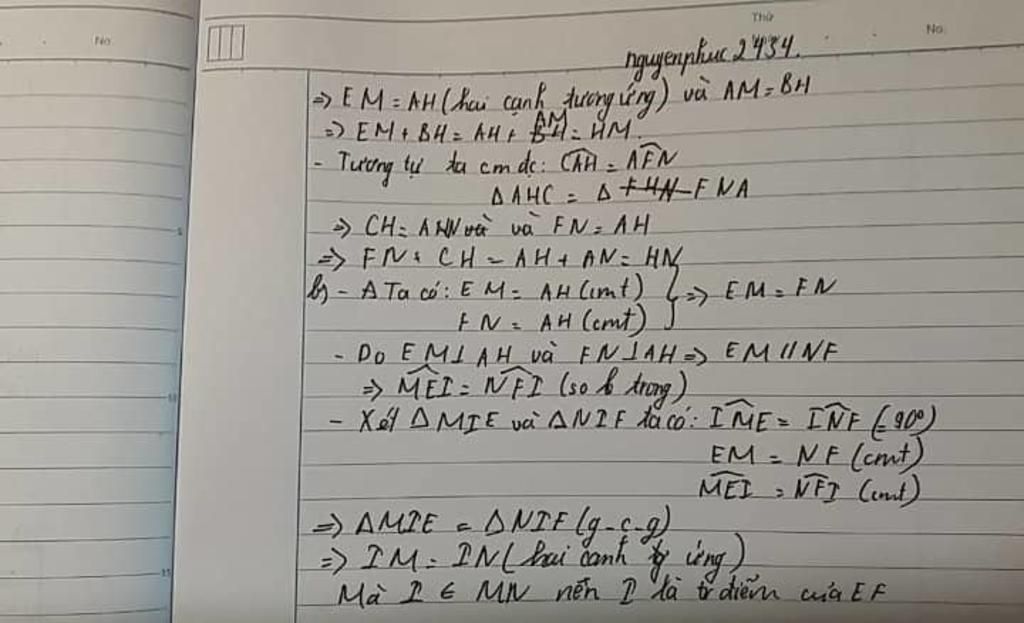 Thứ
No.
No.
nguyenphuc2434.
=> EM = AH (hai cạnh tương ứng) và AM = BH
AM
=> EM + BH = AH + BH = HM.
- Tương tự ta cm dc: CAH = AFN
ΔAHC = Δ FHN FNA
=> CH = ANN và và FN = AH
=> FN + CH = AH + AN = HN
b) - A Ta có: EM = AH (cmt) } => EM = FN
FN = AH (cmt)
- Do EM⊥AH và FN⊥AH => EM // NF
=> MEI = NFI (so le trong)
- Xét ΔMIE và ΔNIF ta có: IME = INF (= 90°)
EM = NF (cmt)
MEI = NFI (cmt)
=> ΔMIE = ΔNIF (g-c-g)
=> IM = IN (hai cạnh tg ứng)
Mà I ∈ MN nên I là tr điểm của EF